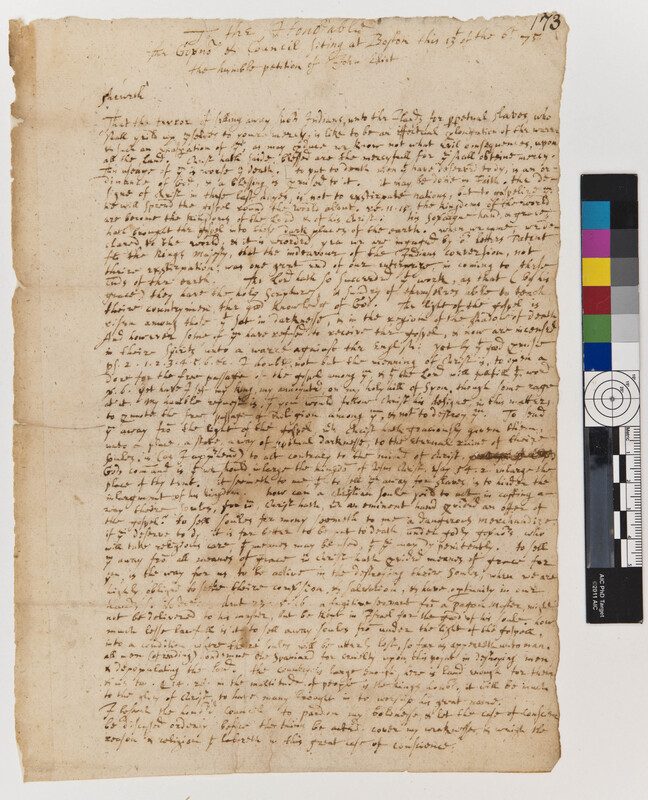 173
To the Honorable
The Govnor & Council sitting at Boston this 13t of the 6t 75
the humble petition of John Eliot
sheweth
That the terror of selling away such Indians, unto the Ilands for perpetual slaves, who
shall yeild up yselves to your mercy, is like to be an effectual prolongation of the warre
such an exasperation of it, as may produce we know not what evil consequences, upon
all the land. Christ hath saide, blessed are the mercyfull for yy shall obtaine mercy.
This useage of ym is worse yn death. to put to death men yt have deserved to dy, is an or-
dinance of God, & a blessing is promised to it. it may be done in faith. the de-
signe of Christ in these last dayes, is not to extirpate nations, but to gospelize ym
he will spread the gospel round the world about. rev. 11. 15. the kingdoms of the world
are become the kingdoms of the Lord & of his Christ. his soveraigne hand, & grace
hath brought the gospel into these dark places of the earth. when we came, we de-
clared to the world, & it is recorded, yea we are ingaged by or letters Patent
the Kings Majesty, that the indeavour of the Indians conversion, not
theire exstirpation, was one great end of our enterprize in coming to these
ends of the earth. The Lord hath so succeeded yt work, as that (by his
grace) they have the holy Scriptures, & sundry of themselves able to teach
theire countrymen, the good knowledg of God. The light of the gospel is
risen among those yt sat in darknesse, & in the region of the shadow of death
And however some of ym have refused to receive the gospel, & now are incensed
in theire spirits unto a warre against the English: yet by yt good promise
ps. 2. 1. 2. 3. 4. 5. 6. &c. I doubt not but the meaning of Christ is, to open a
dore for the free passage of the gospel among ym, & yt the Lord will fulfill yt word
v. 6. yet have I set my king, my anointed on my holy hill of Syon, though some rage
at it. My humble request is, yt you would follow Christ his designe, in this matter,
to promote the free passage of Religion among ym, & not to destroy ym. To send
ym away from the light of the gospel, wh Christ hath graciously given them,
unto a place, a state, a way of perpetual darknesse, to the eternal ruine of theire
soules, is (as I apprehend) to act contrary to the mind of christ.
Gods command is, yt we should inlarge the kingdom of Jesus Christ, Isay 54. 2 enlarge the
place of thy tent. it seemeth to me, yt to sell ym away for slaves, is to hinder the
inlargment of his kingdom. how can a christian soule yeild to act, in casting a-
way theire soules, for wm Christ hath, wth an eminent hand provided an offer of
the gospel? to sell soules for mony seemeth to me a dangerous merchandize.
if yy deserve to dy, it is far better to be put to death, under godly governors, who
will take religious care, yt meanes may be used, yt yy may dy penitently. to sell
ym away from all meanes of grace, wn Christ hath provided meanes of grace for
ym, is the way for us to be active in the destroying theire soules, when we are
highly obliged to seeke theire conversion, & salvation, & have opportunity in our
hands so to doe. deut 23. 15. 16. a fugitive servant from a pagan Master, might
not be delivered to his master, but be kept in Israel for the good of his soule. how
much lesse lawfull is it to sell away soules from under the light of the gospell,
into a condition, where theire soules will be utterly lost, so far as appeareth unto man.
all men (of reading) condemne the Spaniard for cruelty upon this poynt, in destroying men,
& depopulating the land. the country is large enough, here is land enough for them
& us too. p. 14. 28. in the multitude of people is the kings honor. it will be much
to the glory of Christ, to have many brought in to worship his great name.
I beseech the honord council to pardon my boldnesse, & let the case of conscience
be discussed orderly, before the thing be acted. cover my weaknesse, & weigh the
reason & religion yt laboreth in this great case of conscience.